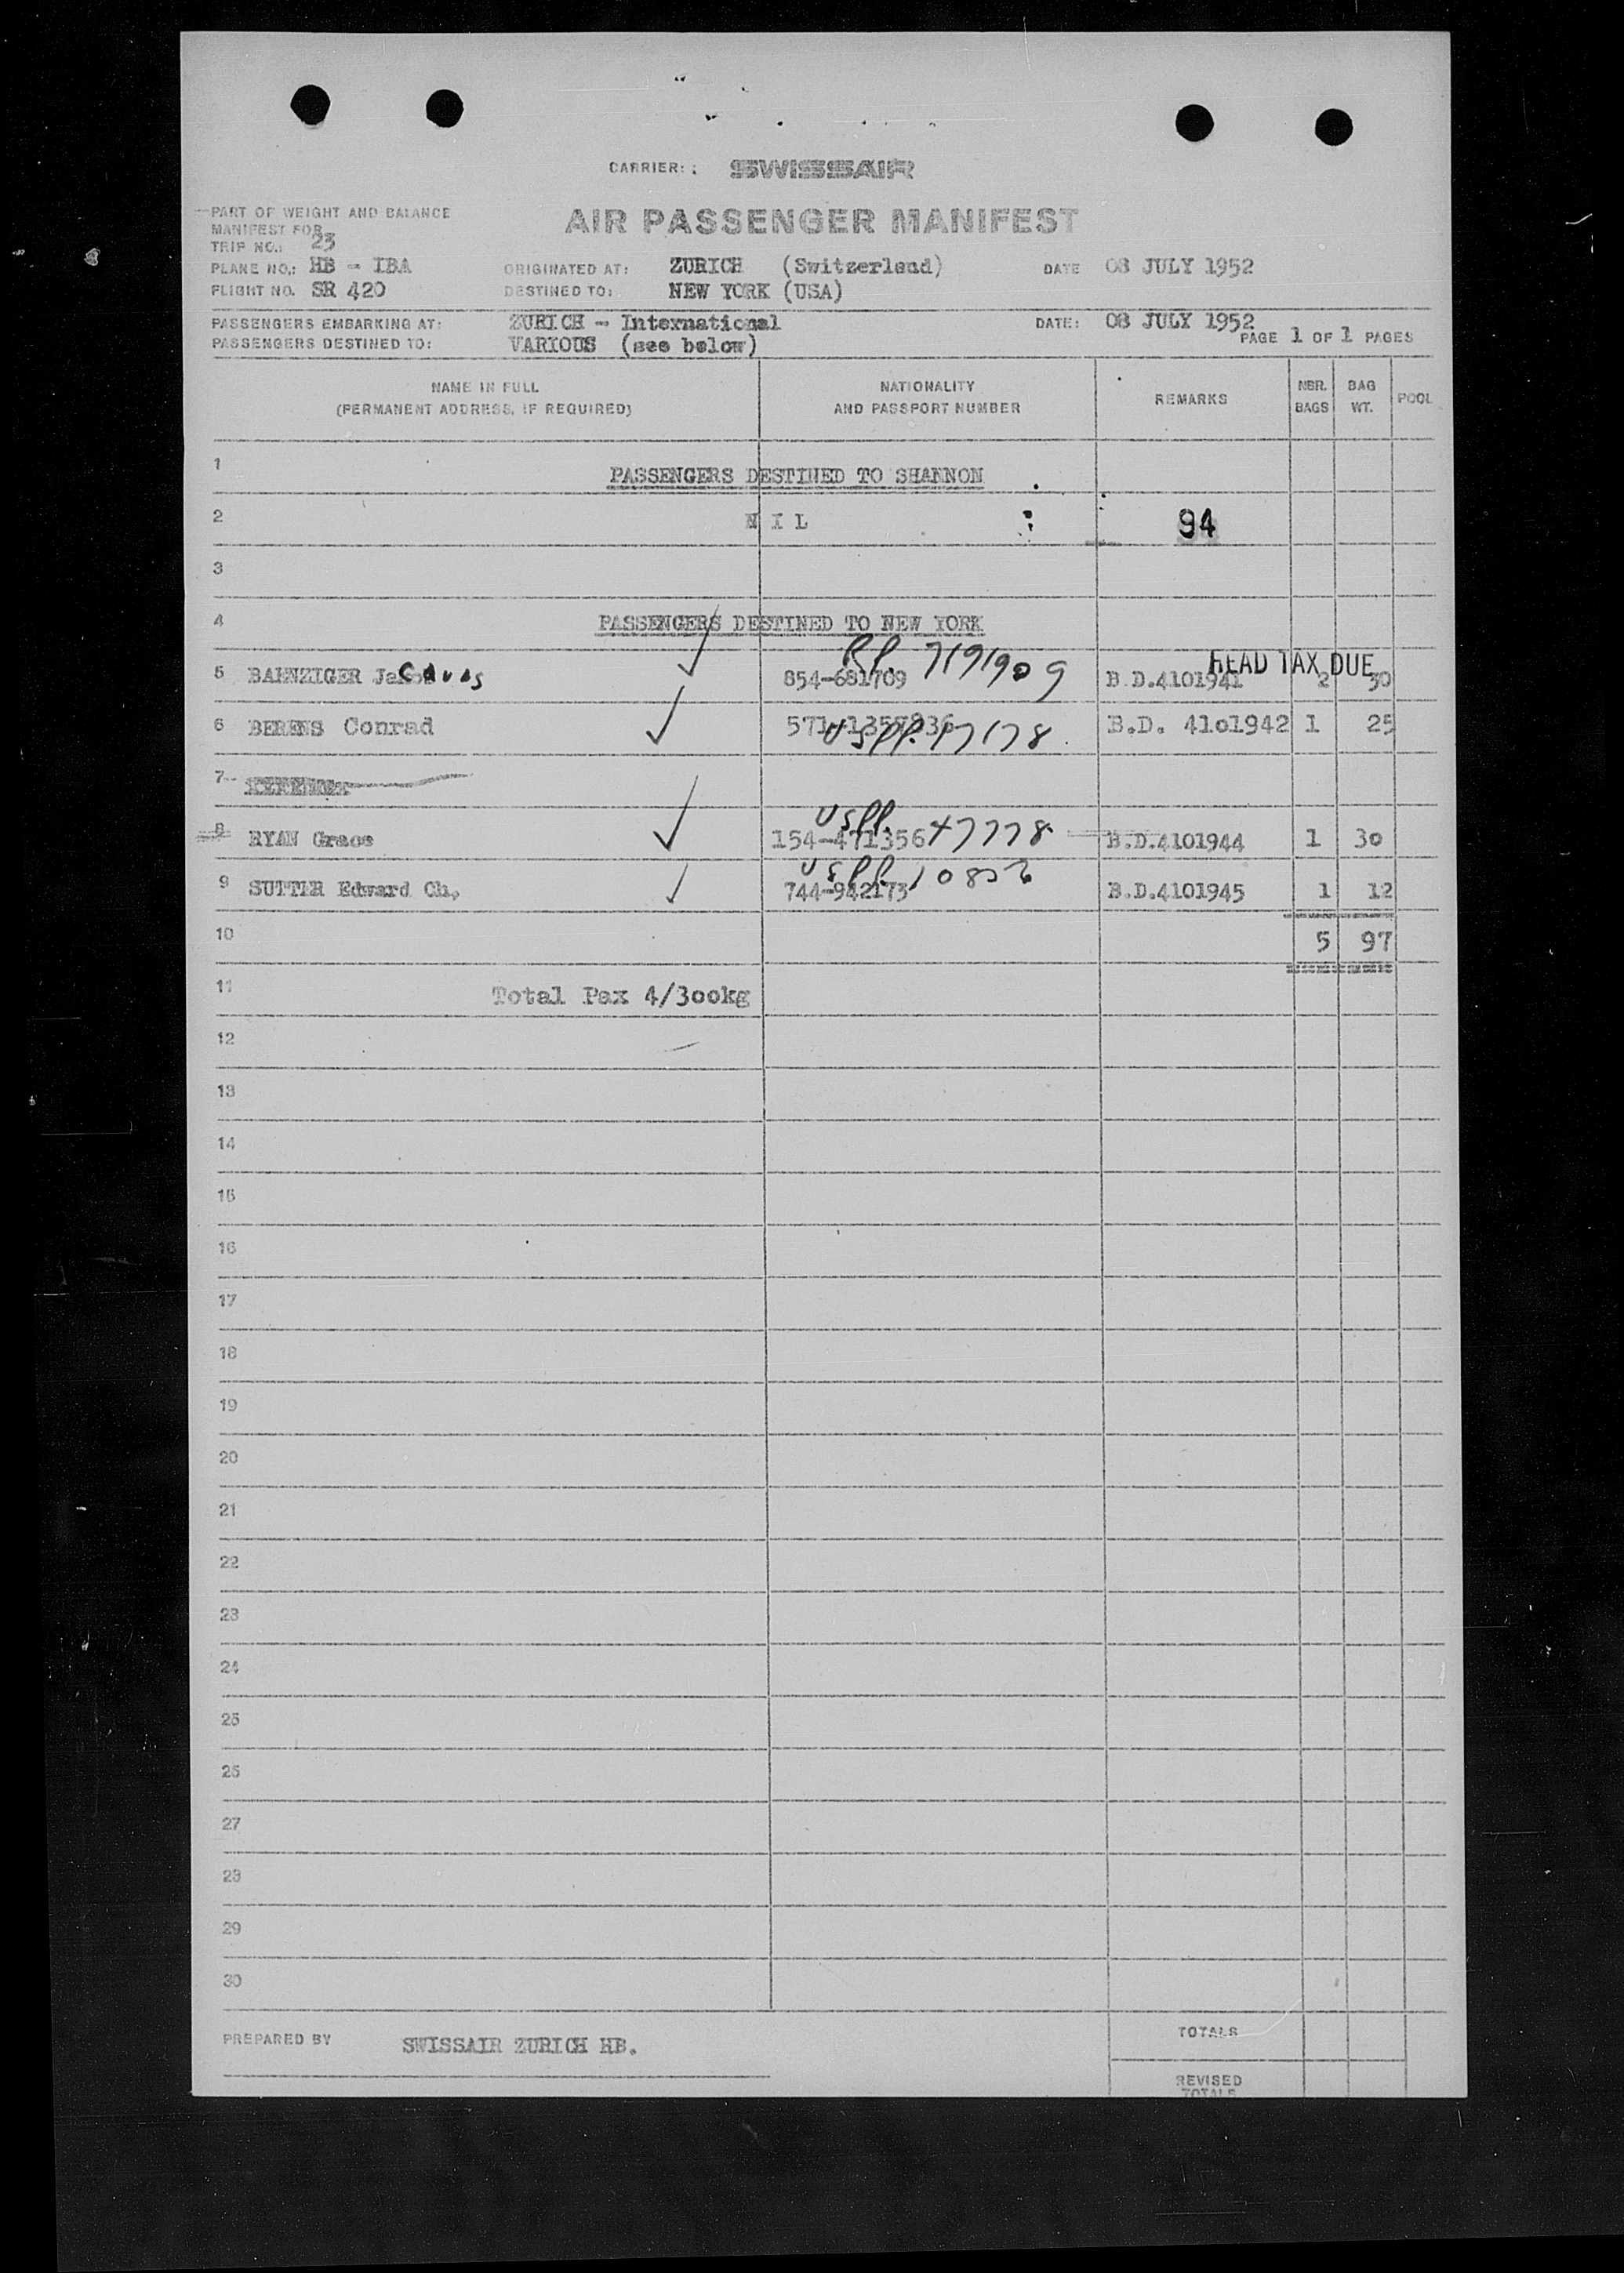 CARRIER: : SWISSAIR
AIR PASSENGER MANIFEST
PART OF WEIGHT AND BALANCE
MANIFEST FOR
TRIP NO.: 23
PLANE NO.: HB - IBA ORIGINATED AT: ZURICH (Switzerland) DATE 08 JULY 1952
FLIGHT NO. SR 420 DESTINED TO: NEW YORK (USA)
PASSENGERS EMBARKING AT: ZURICH - International DATE: 08 JULY 1952
PASSENGERS DESTINED TO: VARIOUS (see below) PAGE 1 OF 1 PAGES
NAME IN FULL NATIONALITY REMARKS NBR. BAG POOL
(PERMANENT ADDRESS, IF REQUIRED) AND PASSPORT NUMBER BAGS WT.
1 PASSENGERS DESTINED TO SHANNON
2 N I L 94
3
4 PASSENGERS DESTINED TO NEW YORK
HEAD TAX DUE
5 BAENZIGER 854-681709 B.D.4101941 2 30
6 BERENS Conrad B.D. 4101942 1 25
7
8 RYAN Grace 154-471356 B.D.4101944 1 30
9 SUTTER Edward Ch. 744-942173 B.D.4101945 1 12
10 5 97
11 Total Pax 4/300kg
12
13
14
15
16
17
18
19
20
21
22
23
24
25
26
27
28
29
30
PREPARED BY SWISSAIR ZURICH HB. TOTALS
REVISED
TOTALS